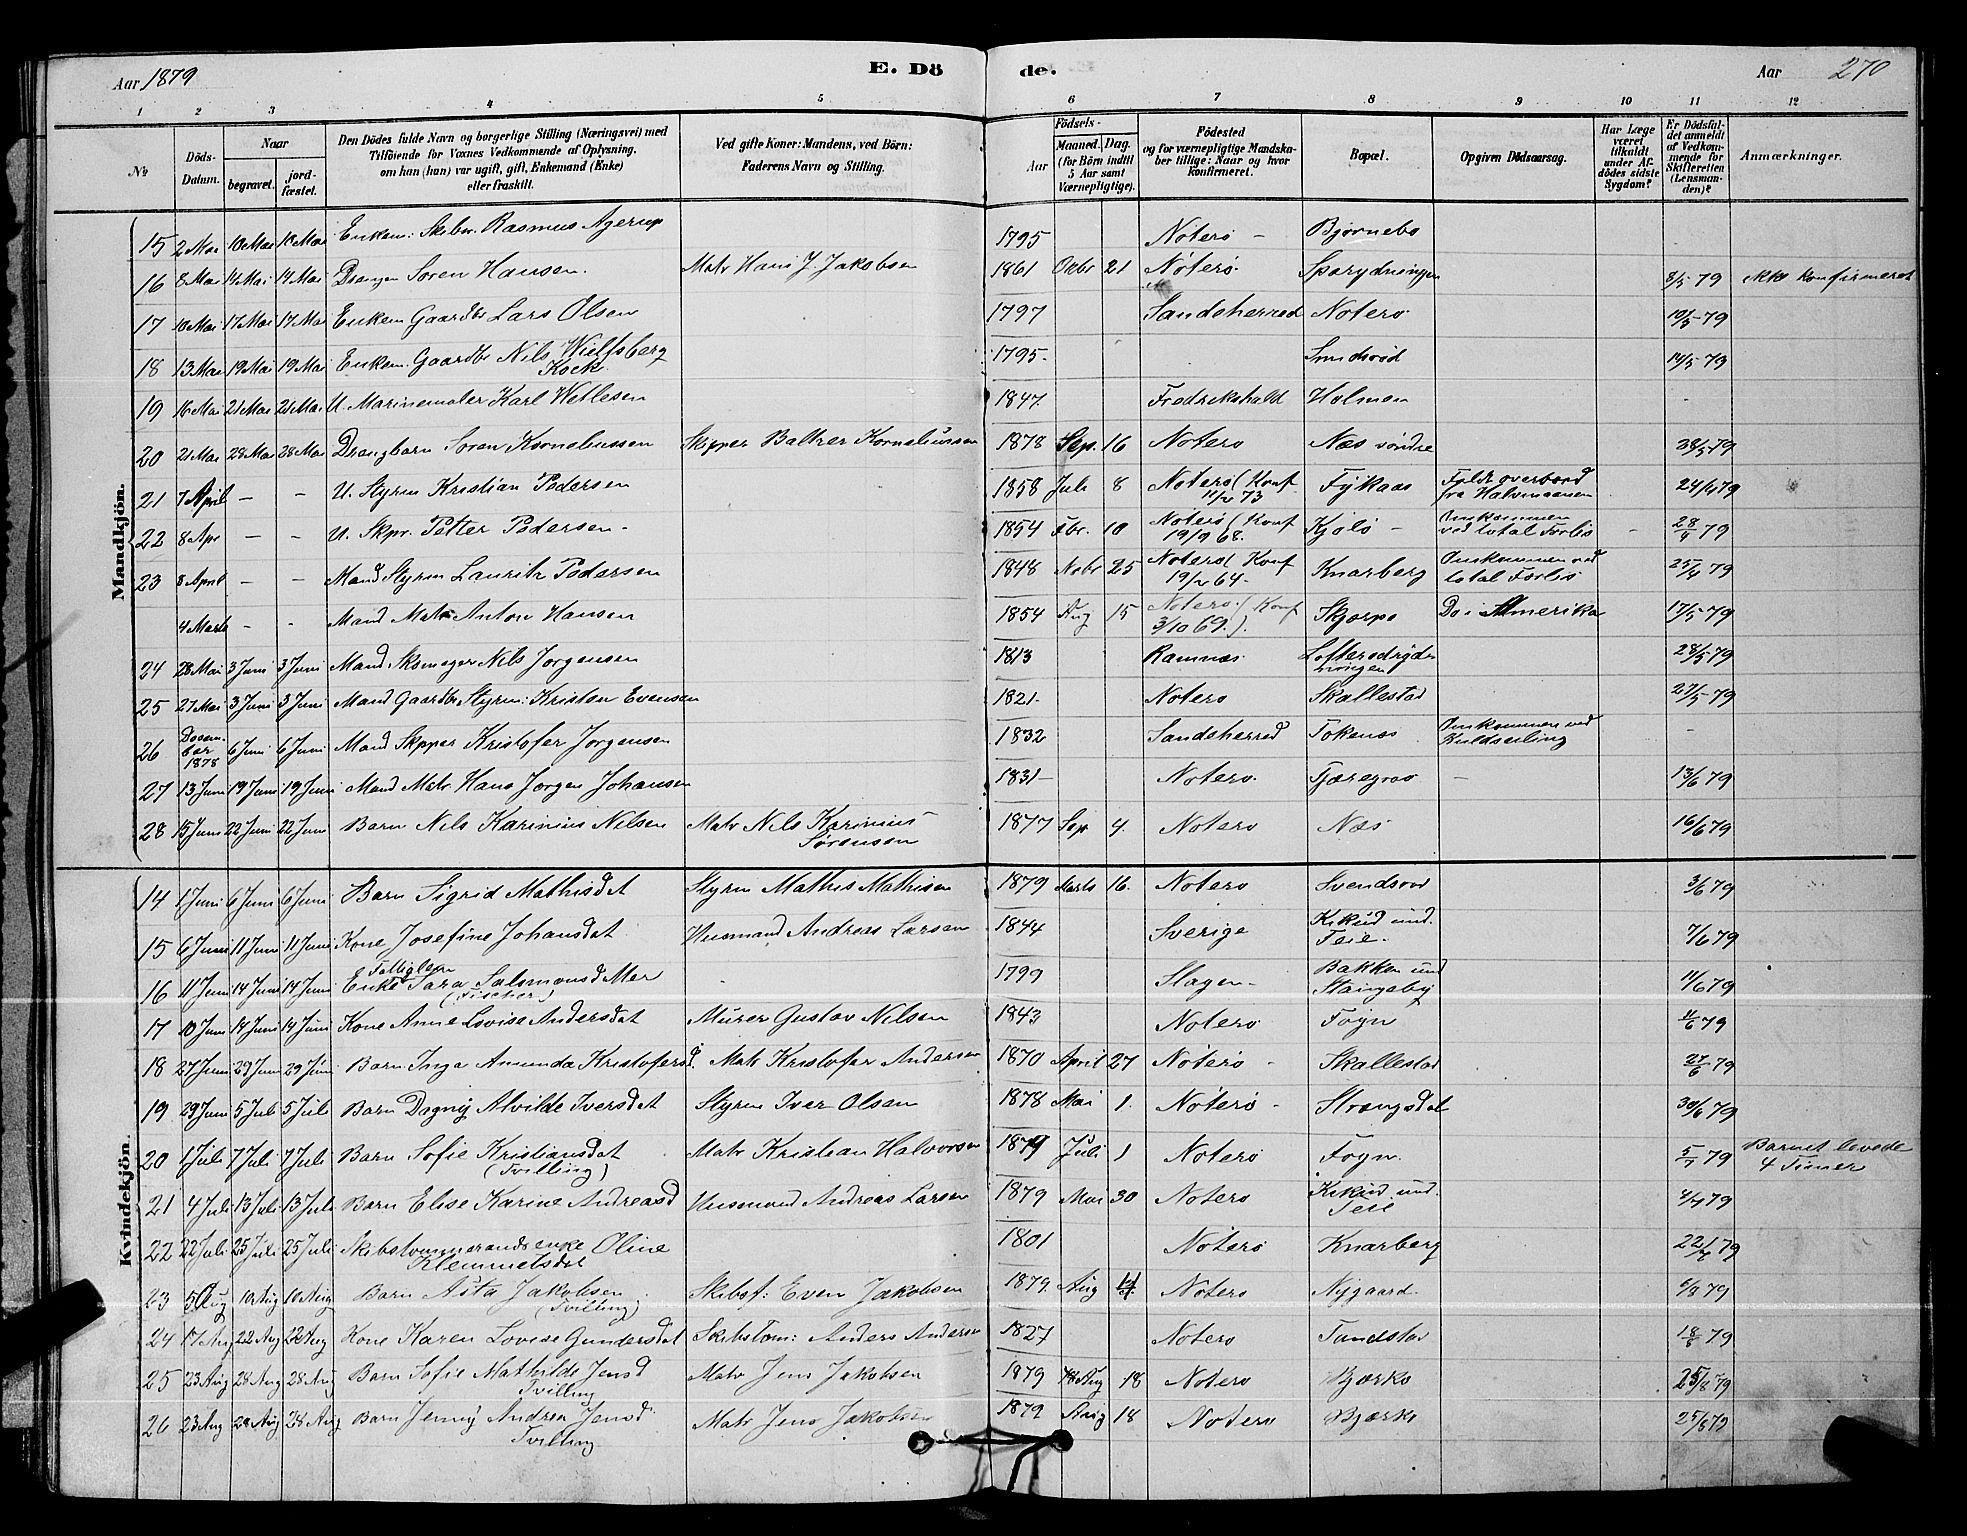 Aar 1879
E. Dö
de.
Aar
270
1 2 3 4 5 6 7 8 9 10 11 12
№
Döds-Datum.
Naar
begravet.
jord-fæstet.
Den Dödes fulde Navn og borgerlige Stilling (Næringsvei) med
Tilföiende for Voxnes Vedkommende af Oplysning,
om han (hun) var ugift, gift, Enkemand (Enke)
eller fraskilt.
Ved gifte Koner: Mandens, ved Börn:
Faderens Navn og Stilling.
Födsels-
Aar
Maaned. Dag.
(for Börn indtil
5 Aar samt
Værnepligtige).
Födested
og for værnepligtige Mandska-
ber tillige: Naar og hvor
konfirmeret.
Bopæl.
Opgiven Dödsaarsag.
Har Læge
været
tilkaldt
under Af-
dödes sidste
Sygdom?
Er Dödsfal-
det anmeldt
af Vedkom-
mende for
Skifteretten
(Lensman-
den)?
Anmærkninger.
Mandkjön.
15 2 Mai 10 Mai 10 Mai Enkem: Skibsr. Rasmus Agerup 1795 Nøterø - Bjørnebo
16 8 Mai 14 Mai 14 Mai Drengen Søren Hansen. Matr Hans J. Jakobsen 1861 Oktbr 21 Nøterø. 8/5 79 ikke konfirmeret
17 10 Mai 17 Mai 17 Mai Enkem Gaardbr Lars Olsen 1797 Sandeherred Nøterø 10/5 79
18 13 Mai 19 Mai 19 Mai Enkem. Gaardbr Nils Wielfsberg
Kock. 1795. Smidsrød 14/5 79
19 16 Mai 21 Mai 21 Mai U. Marinemaler Karl Wetlesen 1847. Fredrikshald Holmen -
20 21 Mai 28 Mai 28 Mai Drengbarn Søren Korneliussen Skipper Baltzer Korneliussen 1878 Sep. 16 Nøterø Næs søndre 28/5 79
21 7 April - - U. Styrm Kristian Pedersen 1858 Juli 8 Nøterø (Konf
73 Fykaas Faldt overbord
fra Halvmaanen 24/4 79
22 8 Apr - - U. Skpr. Petter Pedersen - 1854 Fbr. 10 Nøterø (Konf
19/9 68. Kjølø - Omkommen
ved total Forlis - 28/4 79
23 8 April - - Mand Styrm Lauritz Pedersen 1848 Nobr 25 Nøterø (Konf
64 - Knarberg Omkommen ved
total Forlis 25/4 79
4 Marts - - Mand Matr Anton Hansen 1854 Aug 15 Nøterø. (Konf
3/10 69.) Skjerpe Do i Amerika 17/5 79
24 28 Mai 3 Juni 3 Juni Mand Skomager Nils Jørgensen 1813 Ramnæs. 28/5 79
25 27 Mai 3 Juni 3 Juni Mand Gaardbr Styrm: Kristen Evensen 1821. Nøterø Skallestad 27/5 79
26 Decem-
ber
1878 6 Juni 6 Juni Mand Skpper Kristofer Jørgensen 1832 Sandeherred Tokenæs Omkommen ved
Kuldseiling -
27 13 Juni 19 Juni 19 Juni Mand Matr Hans Jørgen Johansen 1831 - Nøterø. Tjæregrav - 13/6 79
28 15 Juni 22 Juni 22 Juni Barn Nils Karinius Nilsen Matr Nils Karinius
Sørensen 1877 Sep 4. Nøterø Næs 16/6 79
Kvindekjön.
14 1 Juni 6 Juni 6 Juni Barn Sigrid Mathisdat Styrm Mathis Mathisen 1879 Marts 16. Nøterø Svendsrød 3/6 79
15 6 Juni 11 Juni 11 Juni Kone Josefine Johansdat Husmand Andreas Larsen 1844 Sverige Kikud und.
Teie. 7/6 79
16 11 Juni 14 Juni 14 Juni Enke Fattiglem Sara Salomonsd Mær
(Fischer) 1799 Slagen - Bakken und
Stangeby 11/6 79
17 10 Juni 14 Juni 14 Juni Kone Anne Lovise Andersdat Murer Gustav Nilsen 1843 Nøterø Føyn 11/6 79
18 27 Juni 29 Juni 29 Juni Barn Inga Amunda Kristofersd. Matr Kristofer Andersen 1870 April 27 Nøterø - Skallestad 27/6 79
19 29 Juni 5 Juli 5 Juli Barn Dagny Alvilde Iversdat Styrm Iver Olsen 1878 Mai 1. Nøterø - Strengsdal 30/6 79
20 1 Juli 7 Juli 7 Juli Barn Sofie Kristiansdat
(Tvilling) Matr Kristian Halvorsen 1879 Juli 1 Nøterø Føyn. 5/7 79 Barnet levede
4 Timer
21 4 Juli 13 Juli 13 Juli Barn Elise Karine Andreasd Husmand Andreas Larsen 1879 Mai 30 Nøterø Kikud und.
Teie 4/7 79
22 22 Juli 25 Juli 25 Juli Skibstømmermandsenke Oline
Klemmetsdat 1801 Nøterø Knarberg 22/7 79
23 5 Aug 10 Aug 10 Aug Barn Asta Jakobsen
(Tvilling) Skibsf: Even Jakobsen 1879. Aug Nøterø Nygaard. 6/8 79
24 17 Aug 22 Aug 22 Aug Kone Karen Lovise Gundersdat Skibstøm: Anders Andersen 1827 Nøterø Tandstad 18/8 79
25 23 Aug 28 Aug 28 Aug Barn Sofie Mathilde Jensd
Tvilling Matr Jens Jakobsen 1879 Aug 18 Nøterø Bjærkø 25/8 79
26 23 Aug 28 Aug 28 Aug Barn Jenny Andrea Jensd
Tvilling Matr Jens Jakobsen 1879 Aug 18 Nøterø Bjærkø 25/8 79